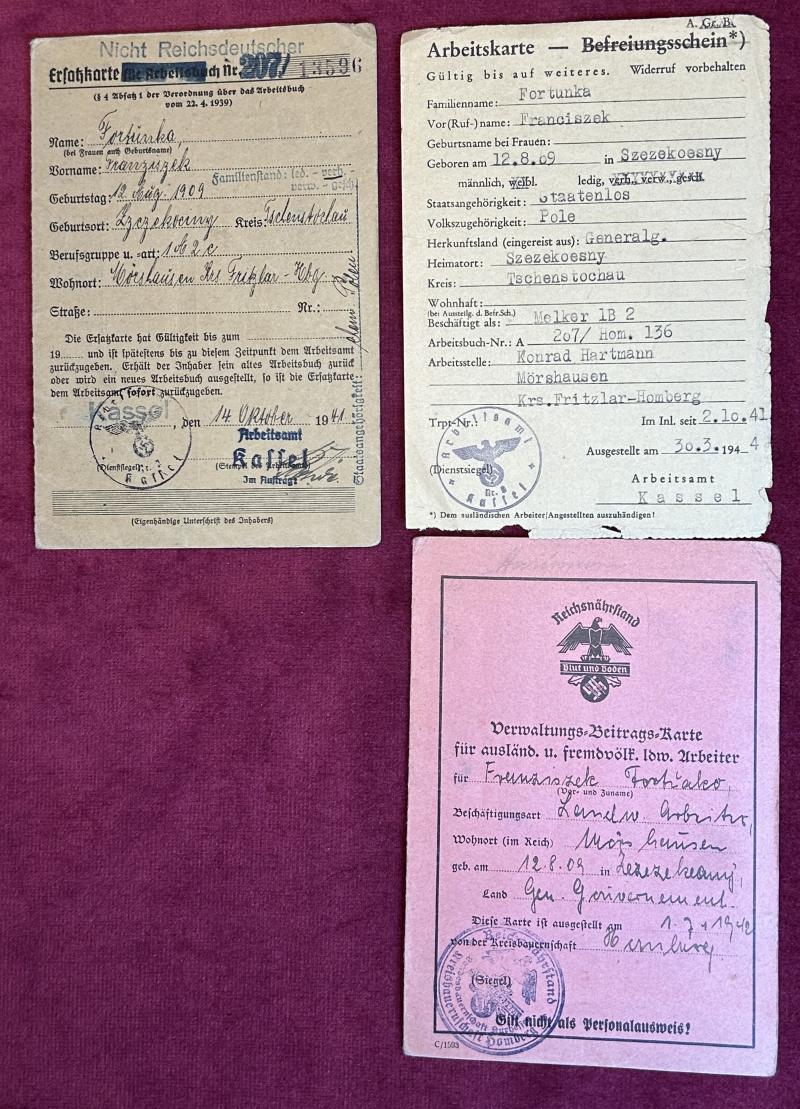 Nicht Reichsdeutscher
Ersatzkarte für Arbeitsbuch Nr. 207/ 13596
(§ 4 Absatz 1 der Verordnung über das Arbeitsbuch
vom 22. 4. 1939)
Name: Fortunka,
(bei Frauen auch Geburtsname)
Vorname: Franzuzek
Familienstand: led. - verh. -
verw. - gesch.
Geburtstag: 12. Aug. 1909
Geburtsort: Szczekociny Kreis: Tschenstochau
Berufsgruppe u. -art: 1 b 2 c
Wohnort: Mörshausen Krs Fritzlar-Hbg.
Straße: Nr.:
Die Ersatzkarte hat Gültigkeit bis zum
19 und ist spätestens bis zu diesem Zeitpunkt dem Arbeitsamt
zurückzugeben. Erhält der Inhaber sein altes Arbeitsbuch zurück
oder wird ein neues Arbeitsbuch ausgestellt, so ist die Ersatzkarte
dem Arbeitsamt sofort zurückzugeben.
Kassel, den 14. Oktober 1941.
Arbeitsamt
Kassel
(Dienstsiegel) (Stempel des Arbeitsamts)
Im Auftrag:
Arbeitsamt Kassel
Staatsangehörigkeit: Polen
(Eigenhändige Unterschrift des Inhabers)
A. Gr. B.
Arbeitskarte — Befreiungsschein*)
Gültig bis auf weiteres. Widerruf vorbehalten
Familienname: Fortunka
Vor(Ruf-)name: Franciszek
Geburtsname bei Frauen:
Geboren am 12.8.09 in Szezekoesny
männlich, weibl. ledig, verh. verw., gesch.
Staatsangehörigkeit: Staatenlos
Volkszugehörigkeit: Pole
Herkunftsland (eingereist aus): Generalg.
Heimatort: Szezekoesny
Kreis: Tschenstochau
Wohnhaft:
(bei Ausstellg. d. Befr.Sch.)
Beschäftigt als: Melker 1B 2
Arbeitsbuch-Nr.: A 207/ Hom. 136
Arbeitsstelle: Konrad Hartmann
Mörshausen
Krs.Fritzlar-Homberg
Trpt-Nr.: Im Inl. seit 2.10.41
Ausgestellt am 30.3. 1944
(Dienstsiegel)
Arbeitsamt
Kassel
Arbeitsamt Kassel
*) Dem ausländischen Arbeiter/Angestellten auszuhändigen!
Reichsnährstand
Blut und Boden
Verwaltungs-Beitrags-Karte
für ausländ. u. fremdvölk. ldw. Arbeiter
für Franziszek Fortunko,
(Vor- und Zuname)
Beschäftigungsart Landw Arbeiter,
Wohnort (im Reich) Mörshausen
geb. am 12.8.09 in Szezekeany,
Land Gen. Gouvernement.
Diese Karte ist ausgestellt am 1.7.1942
von der Kreisbauernschaft Homberg
(Siegel)
Reichsnährstand
Kreisbauernschaft Homberg
Gilt nicht als Personalausweis!
C/1593